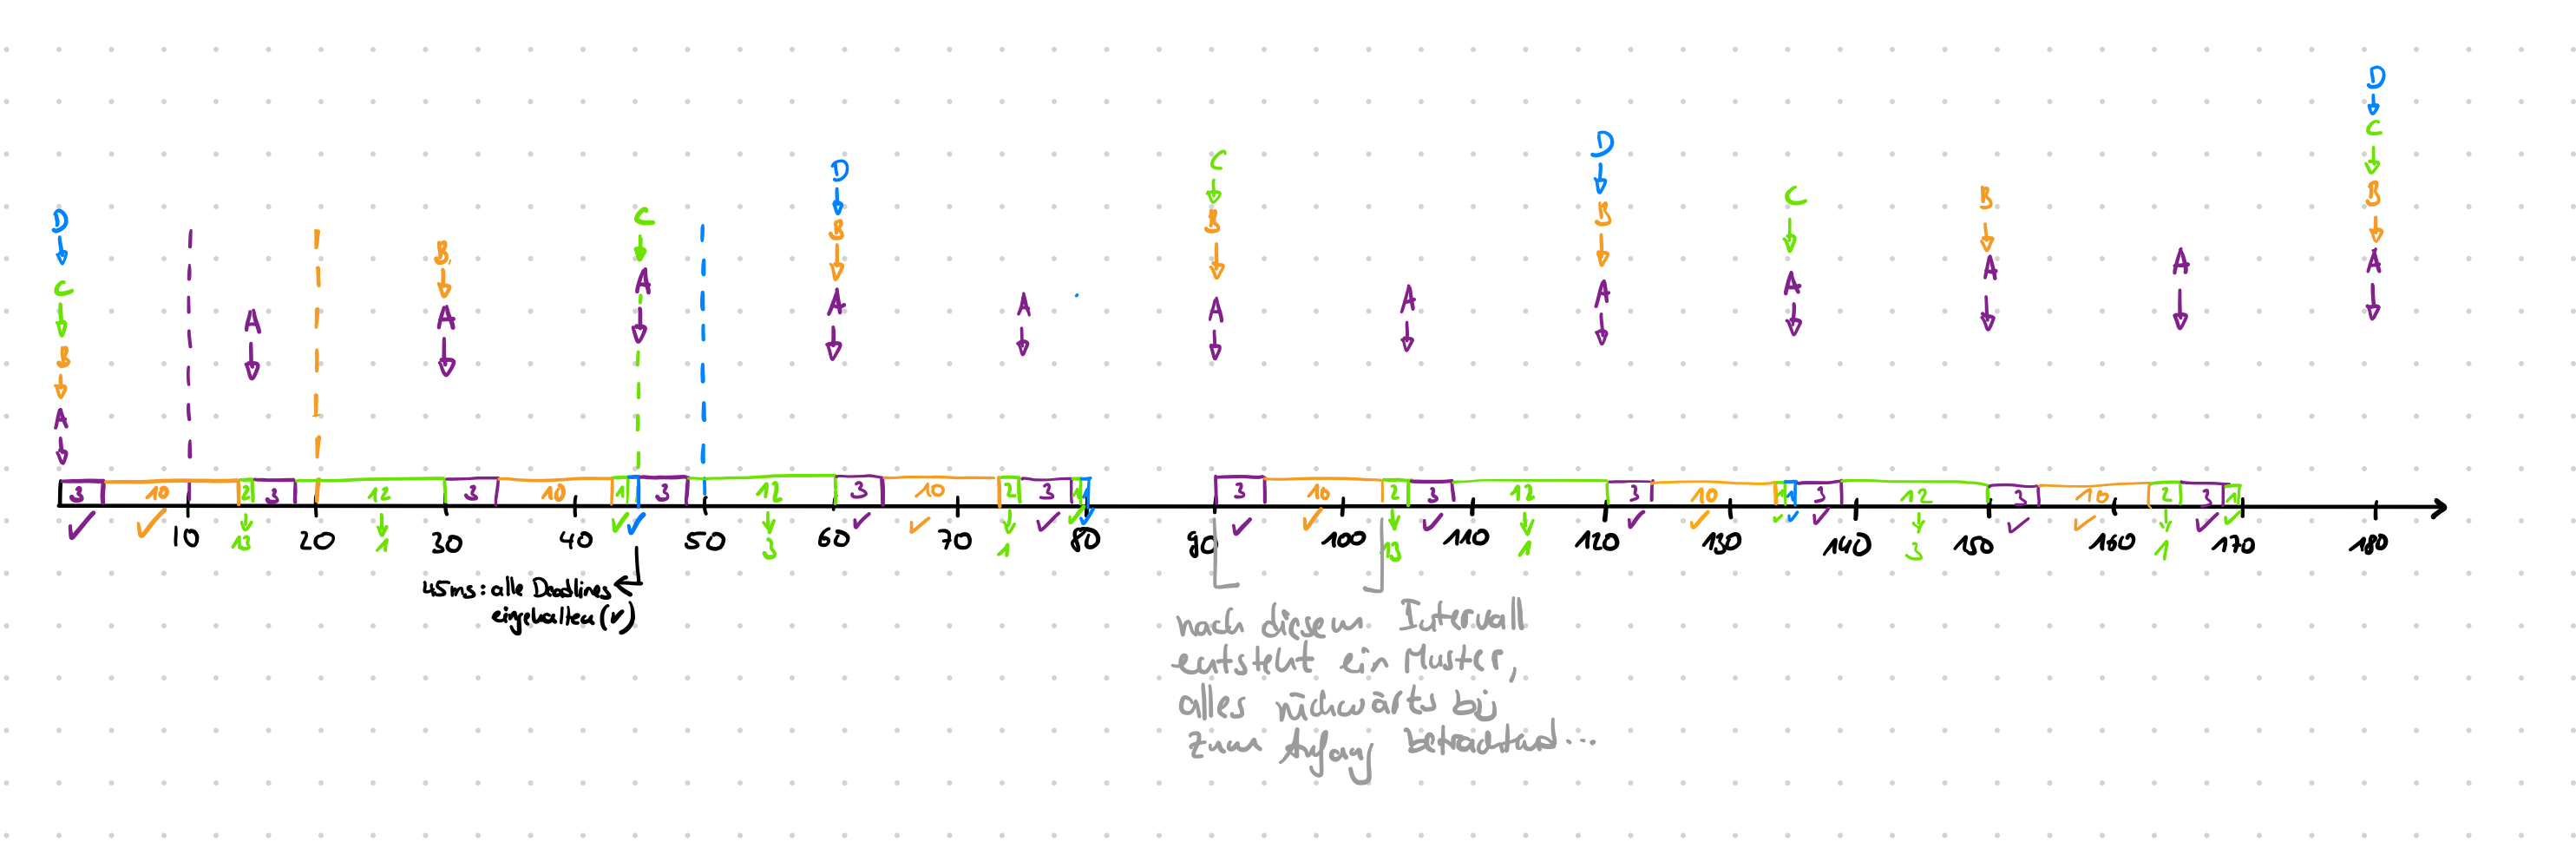 D
D
C
D
C
B
A
D
C
B
A
A
B
A
C
A
D
B
A
A
C
B
A
A
D
B
A
C
A
B
A
A
D
C
B
A
3 10 2 3 12 3 10 1 3 12 3 10 2 3 1 1 3 10 2 3 12 3 10 1 1 3 12 3 10 2 3 1
10 13 20 1 30 40 50 3 60 70 1 80 90 100 13 110 1 120 130 140 3 150 160 1 170 180
45ms: alle Deadlines
eingehalten (✓)
nach diesem Intervall
entsteht ein Muster,
alles rückwärts bis
zum Anfang betrachtend...